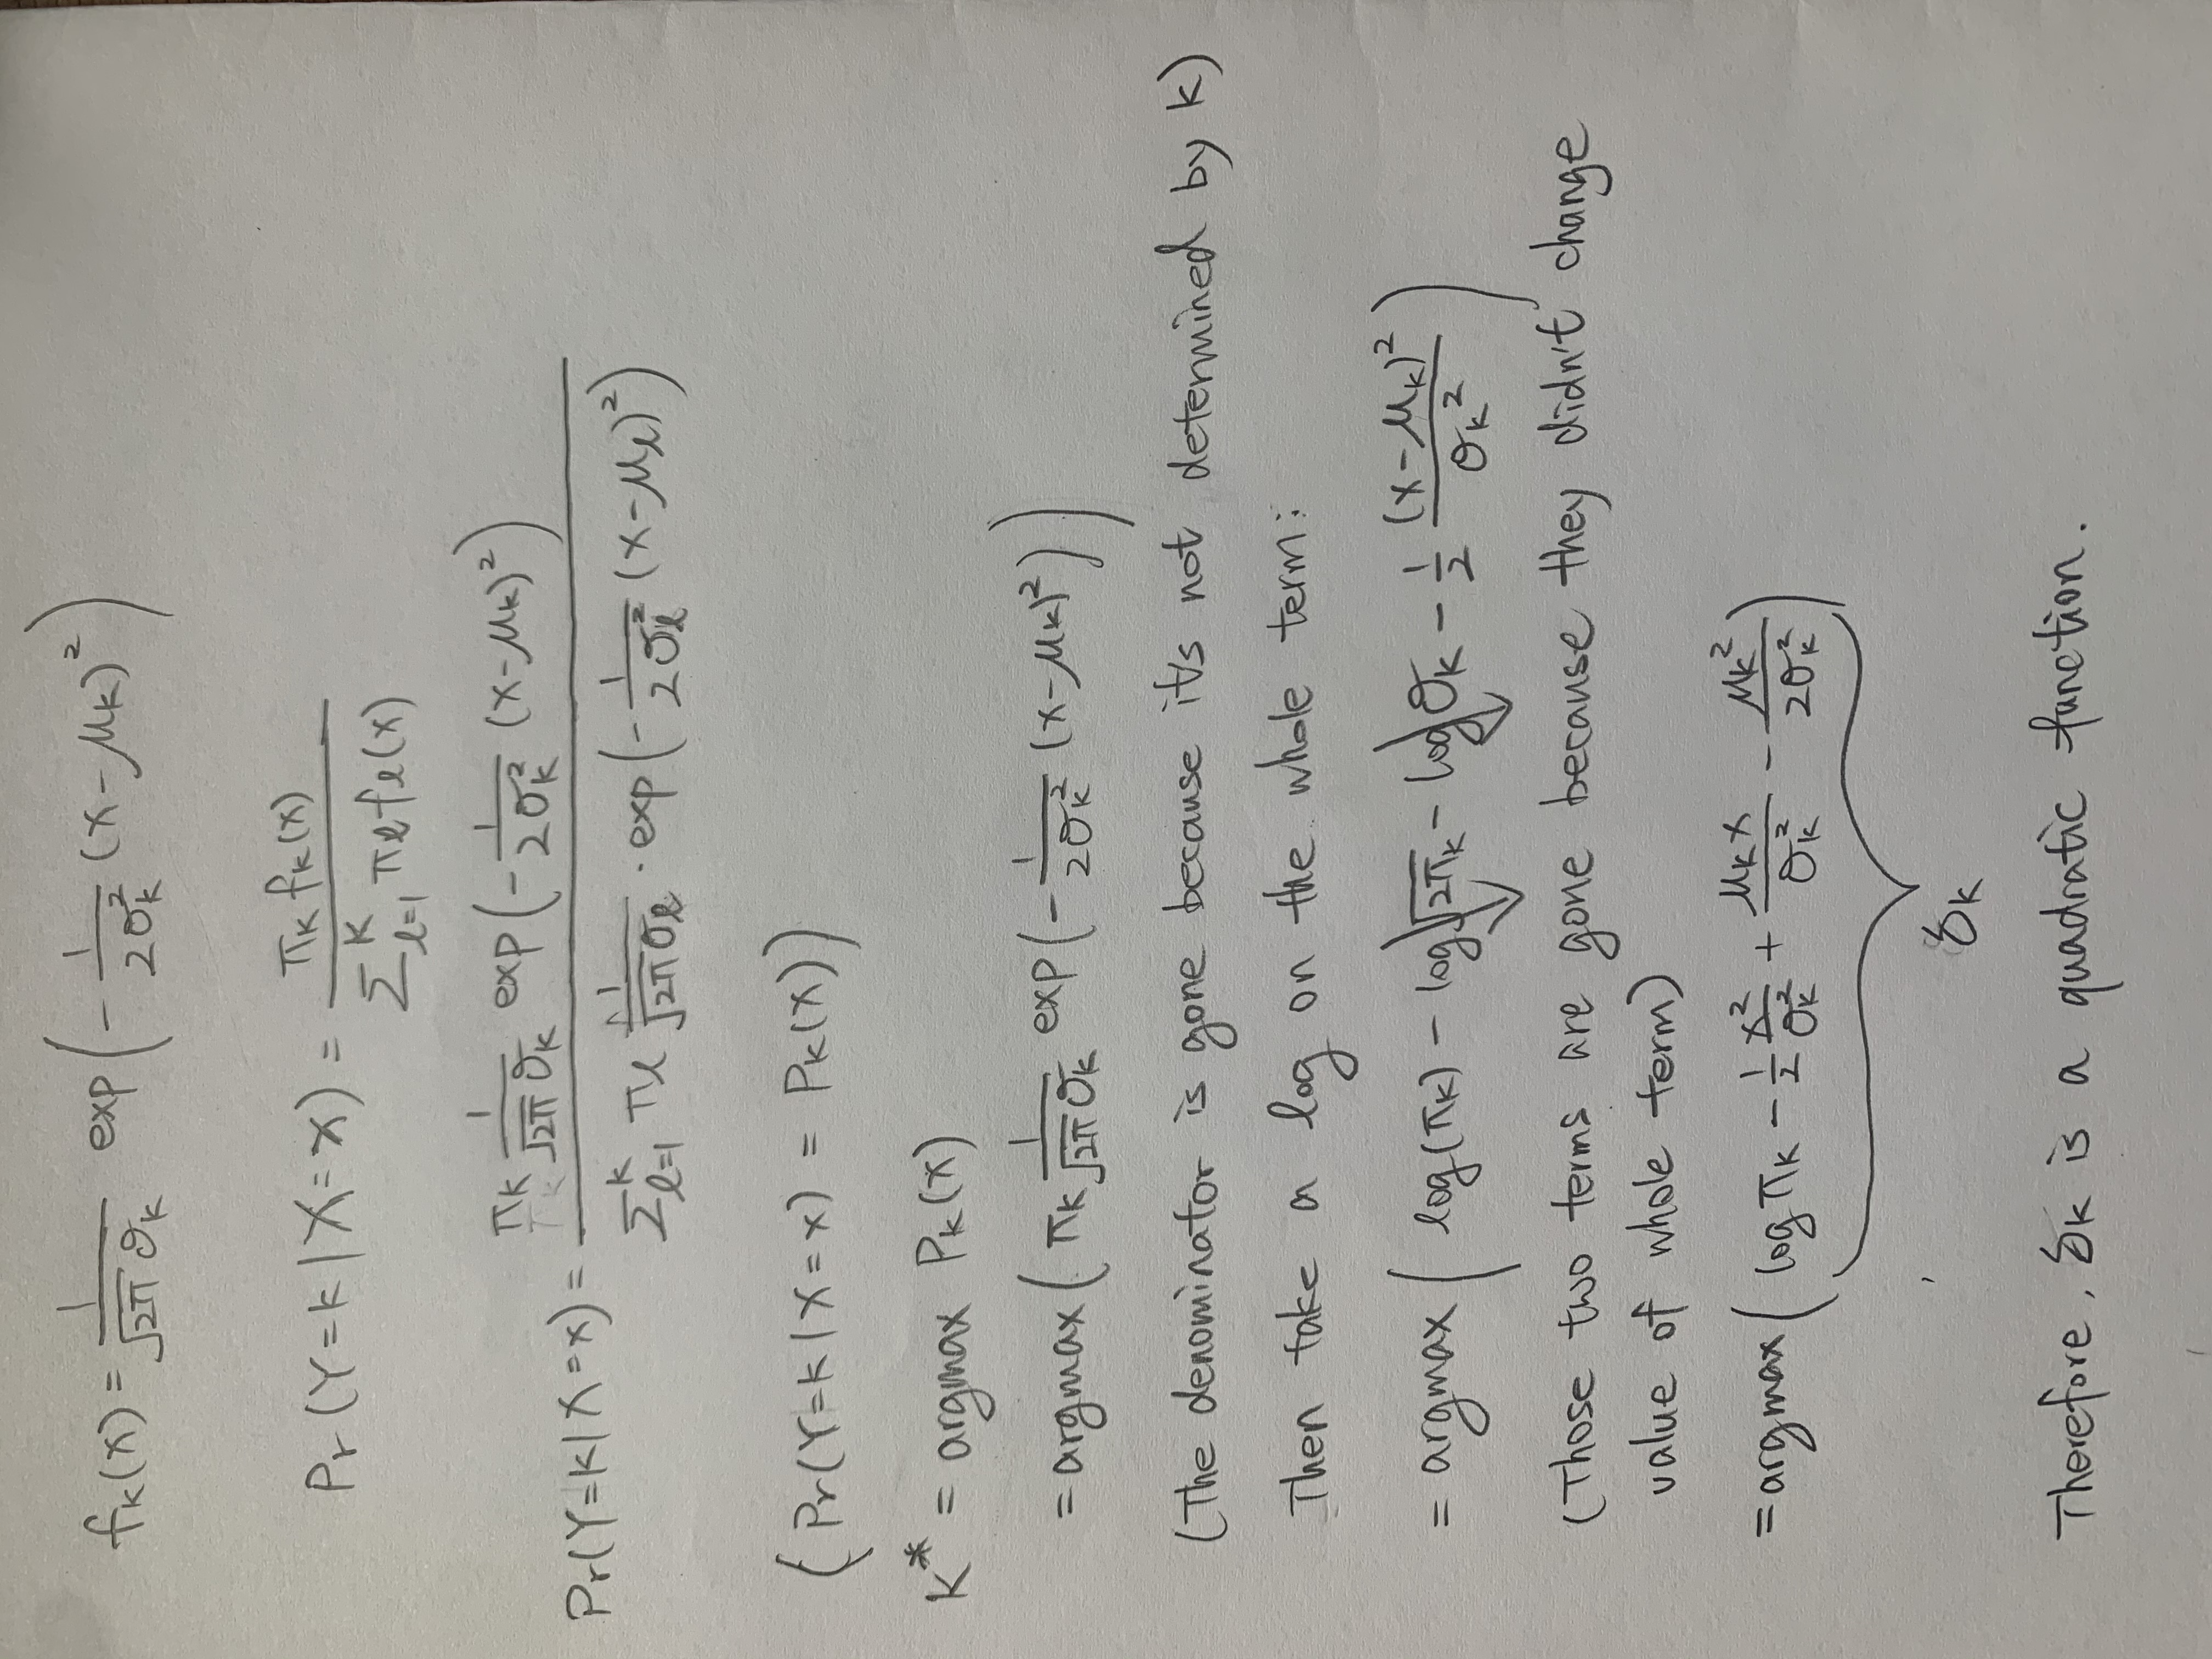 fk(x) = 1/(√2π σk) exp(- 1/(2σk²) (x-μk)²)
Pr(Y=k|X=x) = πk fk(x) / Σ_{ℓ=1}^{K} πℓ fℓ(x)
Pr(Y=k|X=x) = πk 1/(√2π σk) exp(- 1/(2σk²) (x-μk)²) / Σ_{ℓ=1}^{k} πℓ 1/(√2π σℓ) · exp(- 1/(2σℓ²) (x-μℓ)²)
(Pr(Y=k|X=x) = Pk(x))
k* = argmax Pk(x)
= argmax(πk 1/(√2π σk) exp(- 1/(2σk²) (x-μk)²))
(The denominator is gone because it's not determined by k)
Then take a log on the whole term:
= argmax(log(πk) - log√2πk - log σk - 1/2 (x-μk)²/σk²)
(Those two terms are gone because they didn't change
value of whole term)
= argmax(log πk - 1/2 x²/σk² + μk x/σk² - μk²/2σk²)
δk
Therefore, δk is a quadratic function.